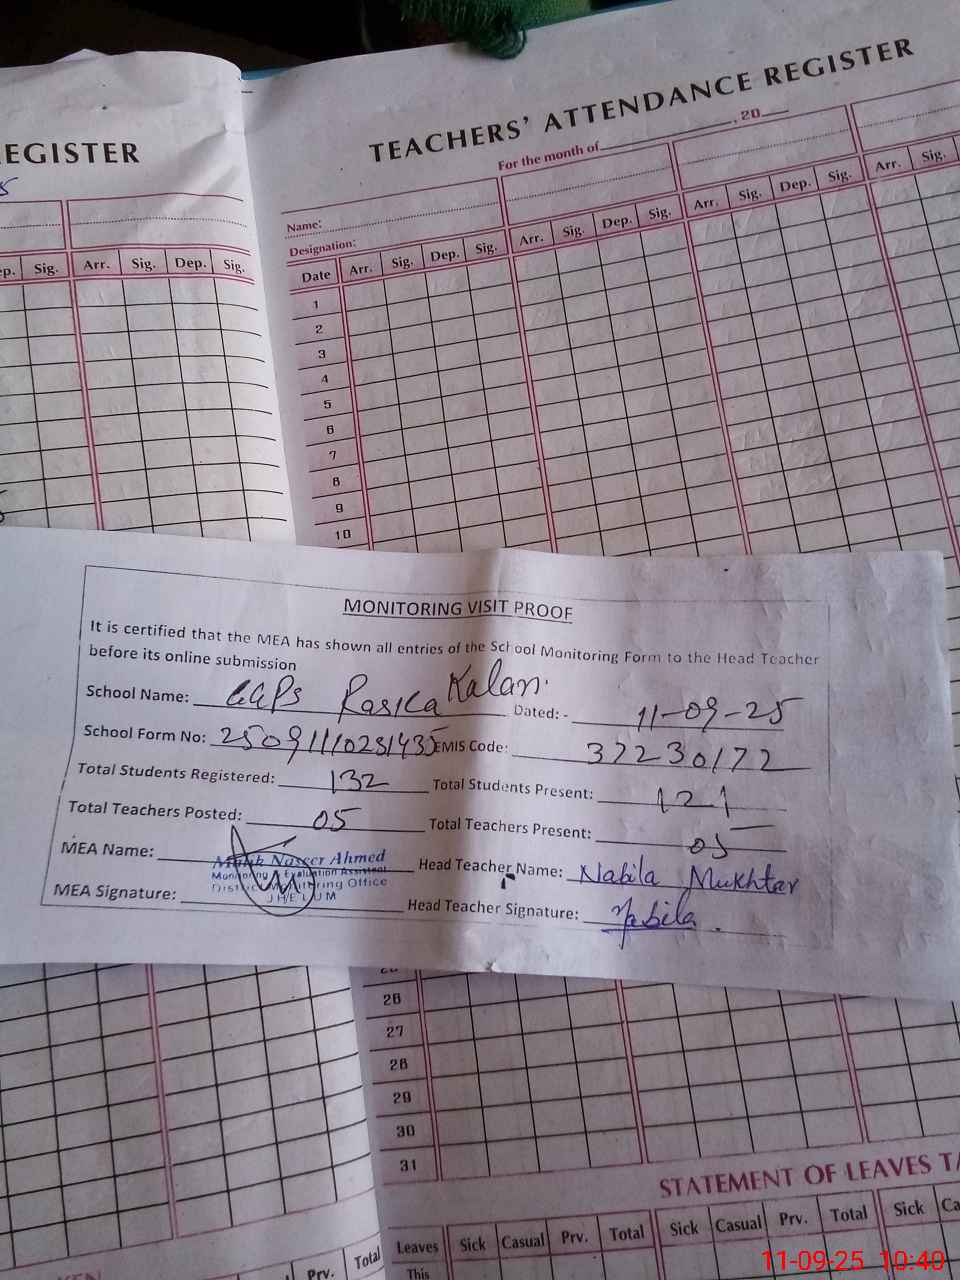 EGISTER
5
ep. Sig. Arr. Sig. Dep. Sig.
TEACHERS' ATTENDANCE REGISTER
For the month of , 20
Name:
Designation:
Date Arr. Sig. Dep. Sig. Arr. Sig. Dep. Sig. Arr. Sig. Dep. Sig. Arr. Sig.
1
2
3
4
5
6
7
8
9
10
MONITORING VISIT PROOF
It is certified that the MEA has shown all entries of the School Monitoring Form to the Head Teacher
before its online submission
School Name: GGPS Rasica Kalan Dated: - 11-09-25
School Form No: 250911110281435 EMIS Code: 37230172
Total Students Registered: 132 Total Students Present: 121
Total Teachers Posted: 05 Total Teachers Present: 05
MEA Name: Malik Naseer Ahmed Head Teacher Name: Nabila Mukhtar
Monitoring & Evaluation Assistant
District Monitoring Office
JHELUM
MEA Signature: Head Teacher Signature: Nabila
26
27
28
29
30
31
STATEMENT OF LEAVES TA
Leaves Sick Casual Prv. Total Sick Casual Prv. Total Sick Ca
This
KEN
Prv. Total
11-09-25 10:40